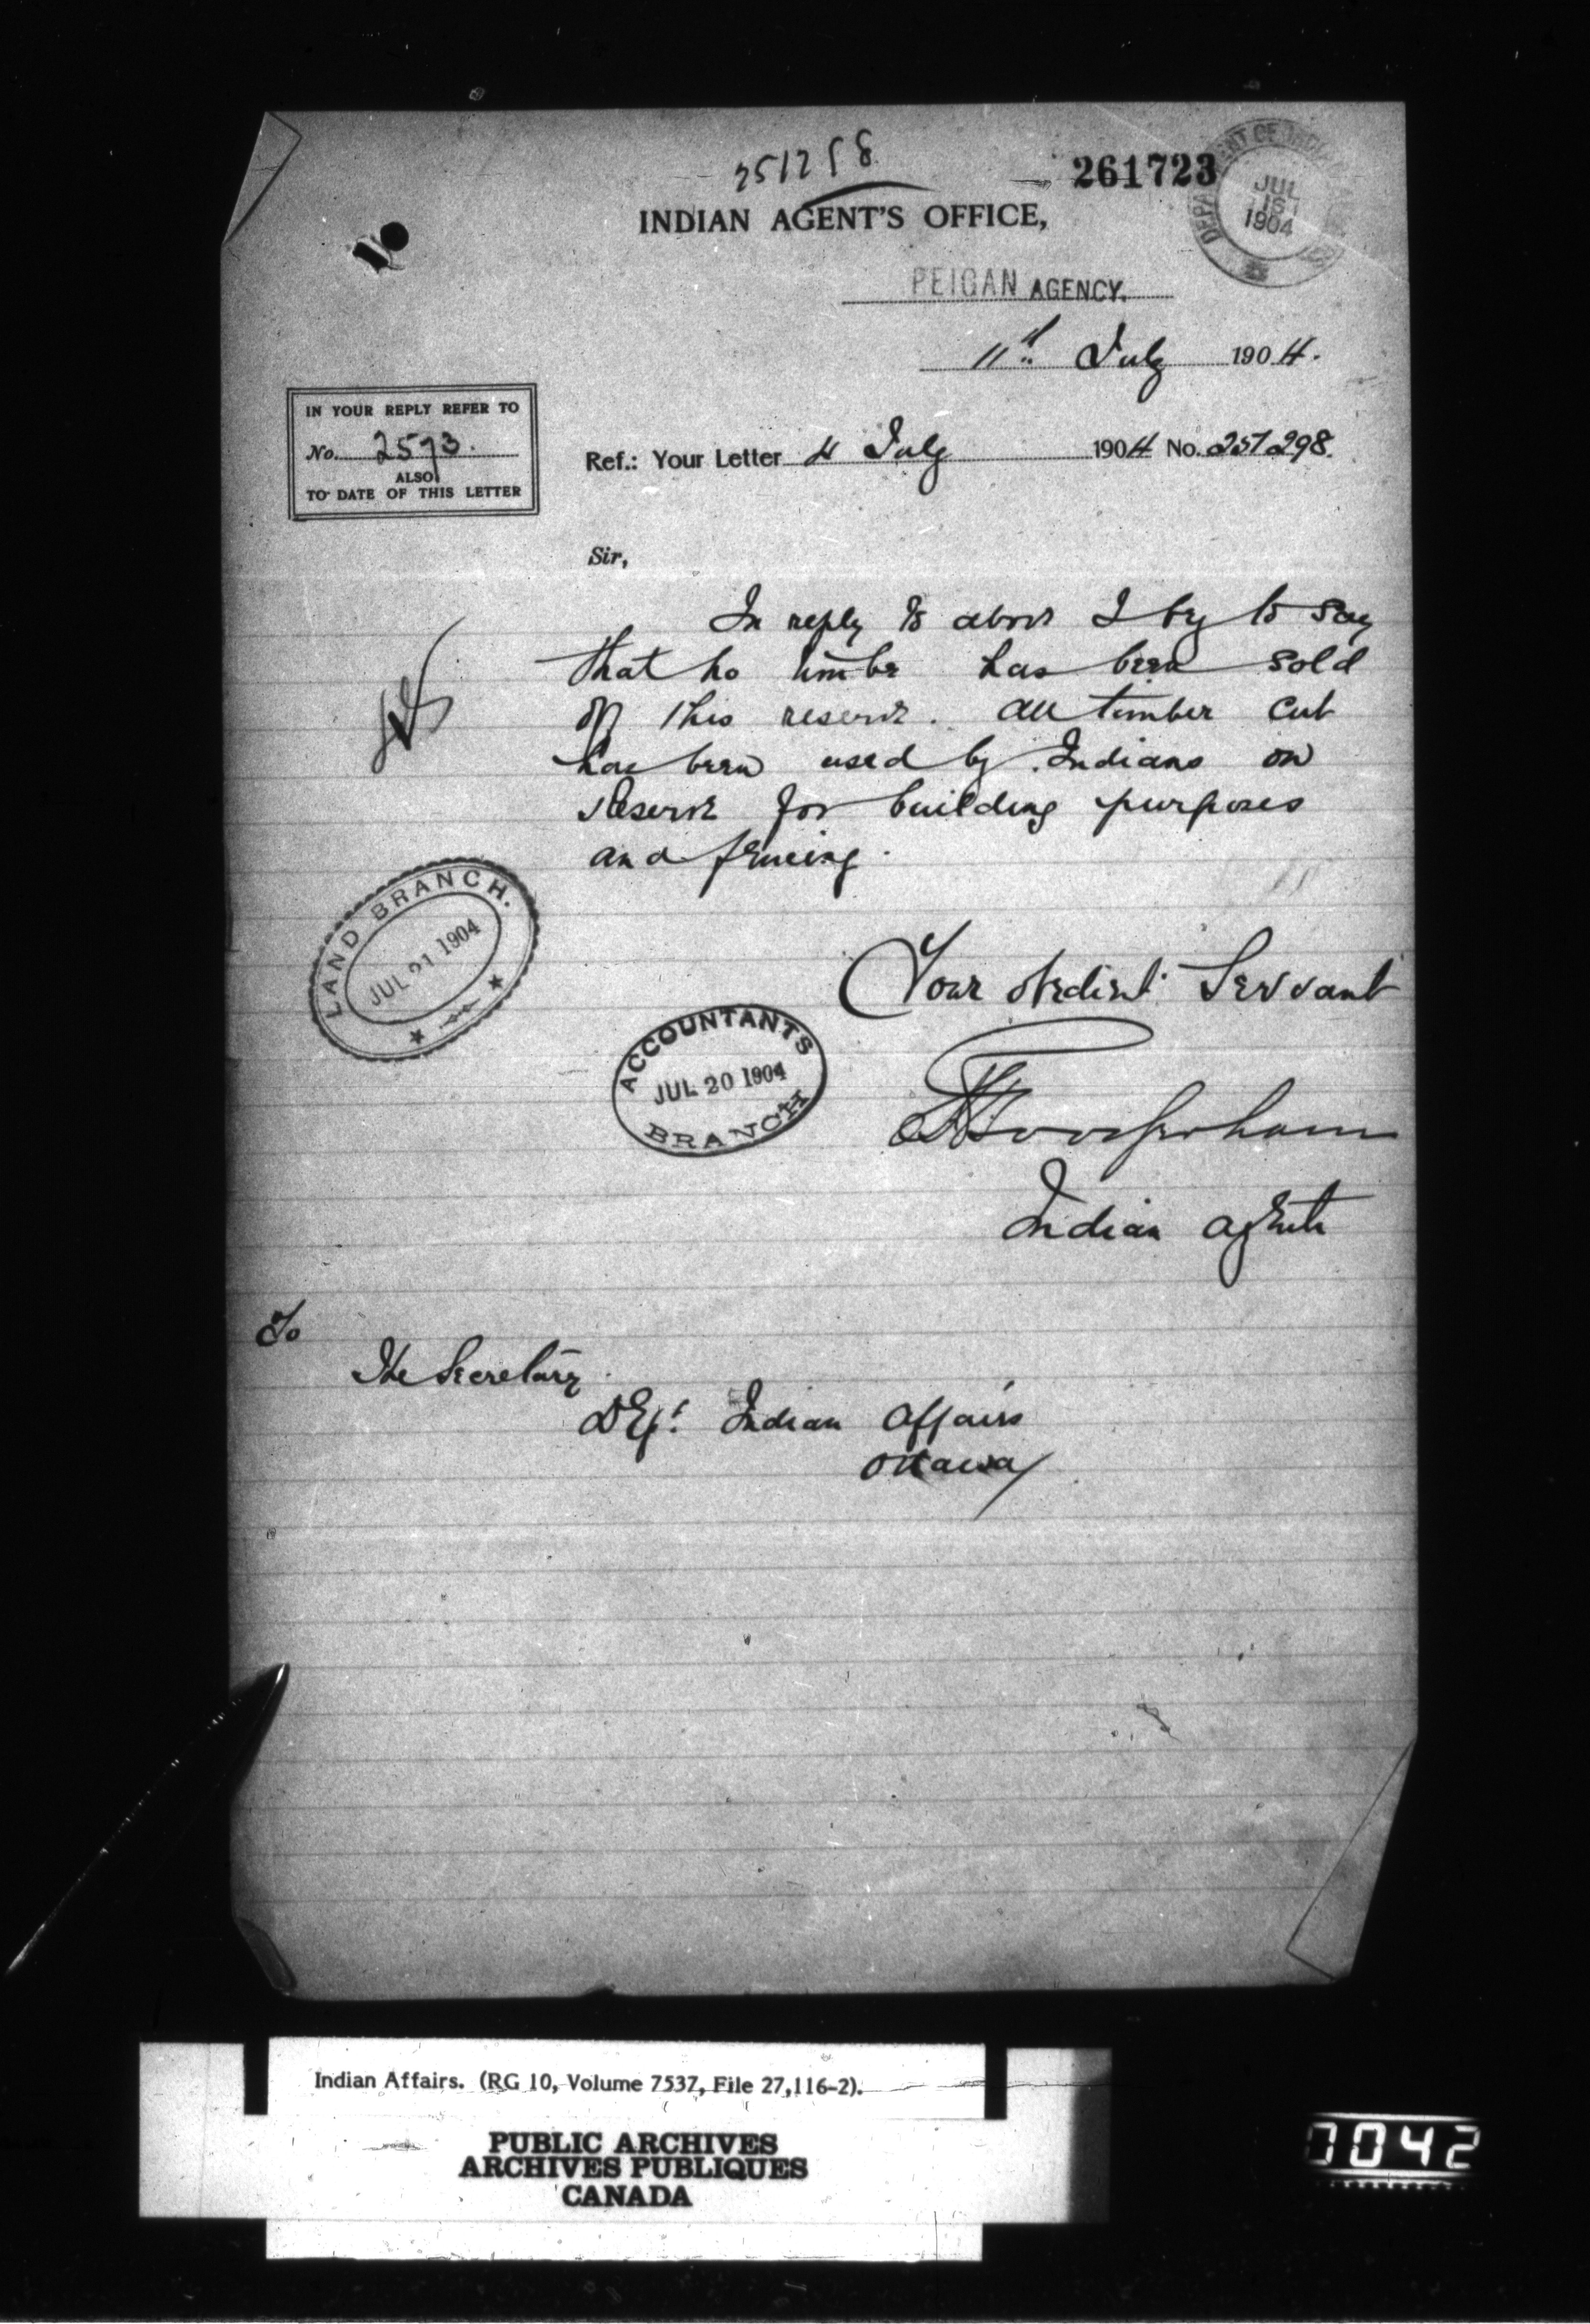 251298
261723
DEPARTMENT OF INDIAN
JUL 16 1904
INDIAN AGENT'S OFFICE,
PEIGAN AGENCY.
11th July 1904.
IN YOUR REPLY REFER TO
No. 2573.
ALSO
TO DATE OF THIS LETTER
Ref.: Your Letter 4 July 1904 No. 251298.
Sir,
In reply to above I beg to say
that no timber has been sold
off this reserve. All timber cut
has been used by Indians on
Reserve for building purposes
and fencing.
LAND BRANCH.
JUL 21 1904
Your obedient Servant
ACCOUNTANTS
JUL 20 1904
BRANCH
Indian Agent
To
The Secretary
Dept. Indian Affairs
Ottawa
Indian Affairs. (RG 10, Volume 7537, File 27,116-2).
PUBLIC ARCHIVES
ARCHIVES PUBLIQUES
CANADA
0042